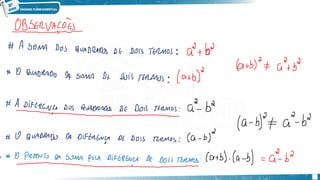 ENSINO FUNDAMENTAL
OBSERVAÇÕES
# A SOMA DOS QUADRADOS DE DOIS TERMOS: a² + b²
* O QUADRADO DA SOMA DE DOIS TERMOS: (a+b)²
(a+b)² ≠ a² + b²
* A DIFERENÇA DOS QUADRADOS DE DOIS TERMOS: a² - b²
* O QUADRADO DA DIFERENÇA DE DOIS TERMOS: (a-b)²
(a-b)² ≠ a² - b²
* O PRODUTO DA SOMA PELA DIFERENÇA DE DOIS TERMOS (a+b).(a-b) = a² - b²